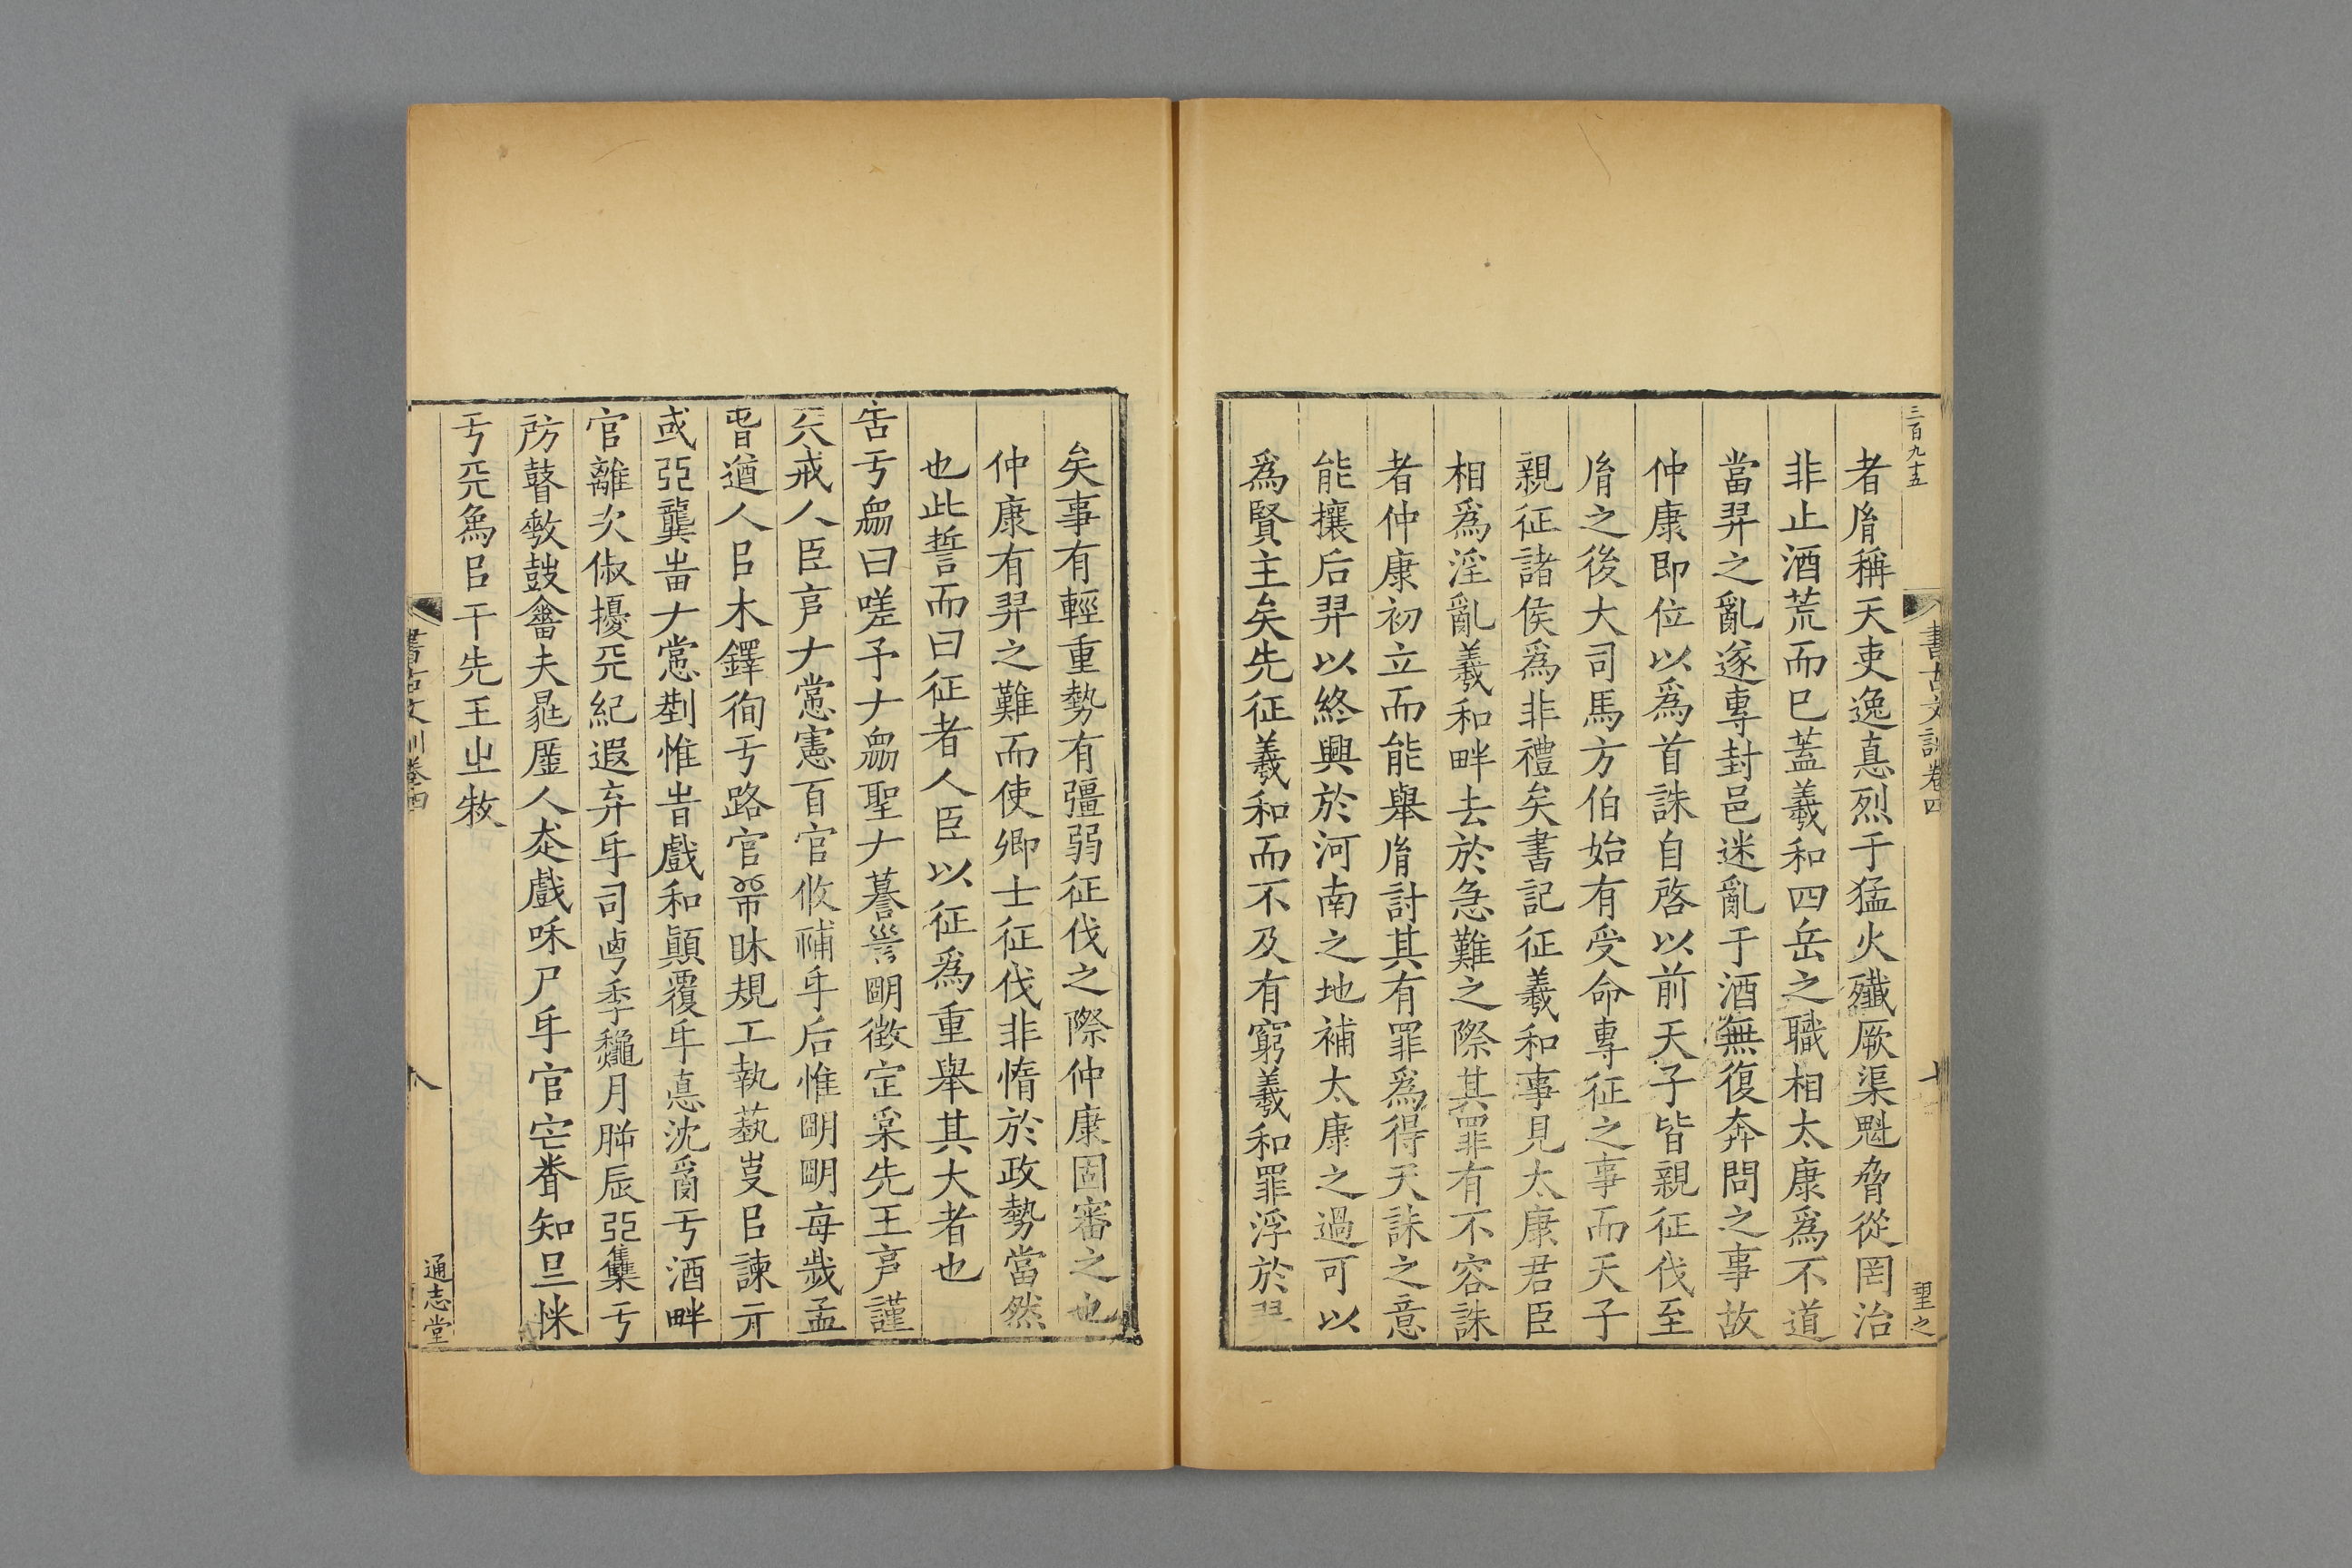 三百九十五
書古文訓卷四
十
者胤稱天吏逸悳烈于猛火殲厥渠魁脅從罔治
非止酒荒而已蓋羲和四岳之職相太康爲不道
當羿之亂遂專封邑迷亂于酒無復奔問之事故
仲康即位以爲首誅自啓以前天子皆親征伐至
胤之後大司馬方伯始有受命專征之事而天子
親征諸侯爲非禮矣書記征羲和事見太康君臣
相爲淫亂羲和畔去於急難之際其罪有不容誅
者仲康初立而能舉胤討其有罪爲得天誅之意
能攘后羿以終興於河南之地補太康之過可以
爲賢主矣先征羲和而不及有窮羲和罪浮於羿
矣事有輕重勢有彊弱征伐之際仲康固審之也
仲康有羿之難而使卿士征伐非惰於政勢當然
也此誓而曰征者人臣以征爲重舉其大者也
告亐衆曰嗟予ナ衆聖ナ謩明徵定保先王亯謹
兲戒人臣亯ナ憲百官攸補𠂆后惟朙朙每歲孟
遒人㠯木鐸徇亐路官眂規工執藝㠯諫
或亞龔ナ惟戲和顚覆悳沈亐酒畔
官離次俶擾紀遐弃司月辰亞集亐
防瞽鼓夫人戲和尸官知
亐㠯干先王㞢
書古文訓卷四
八
通志堂